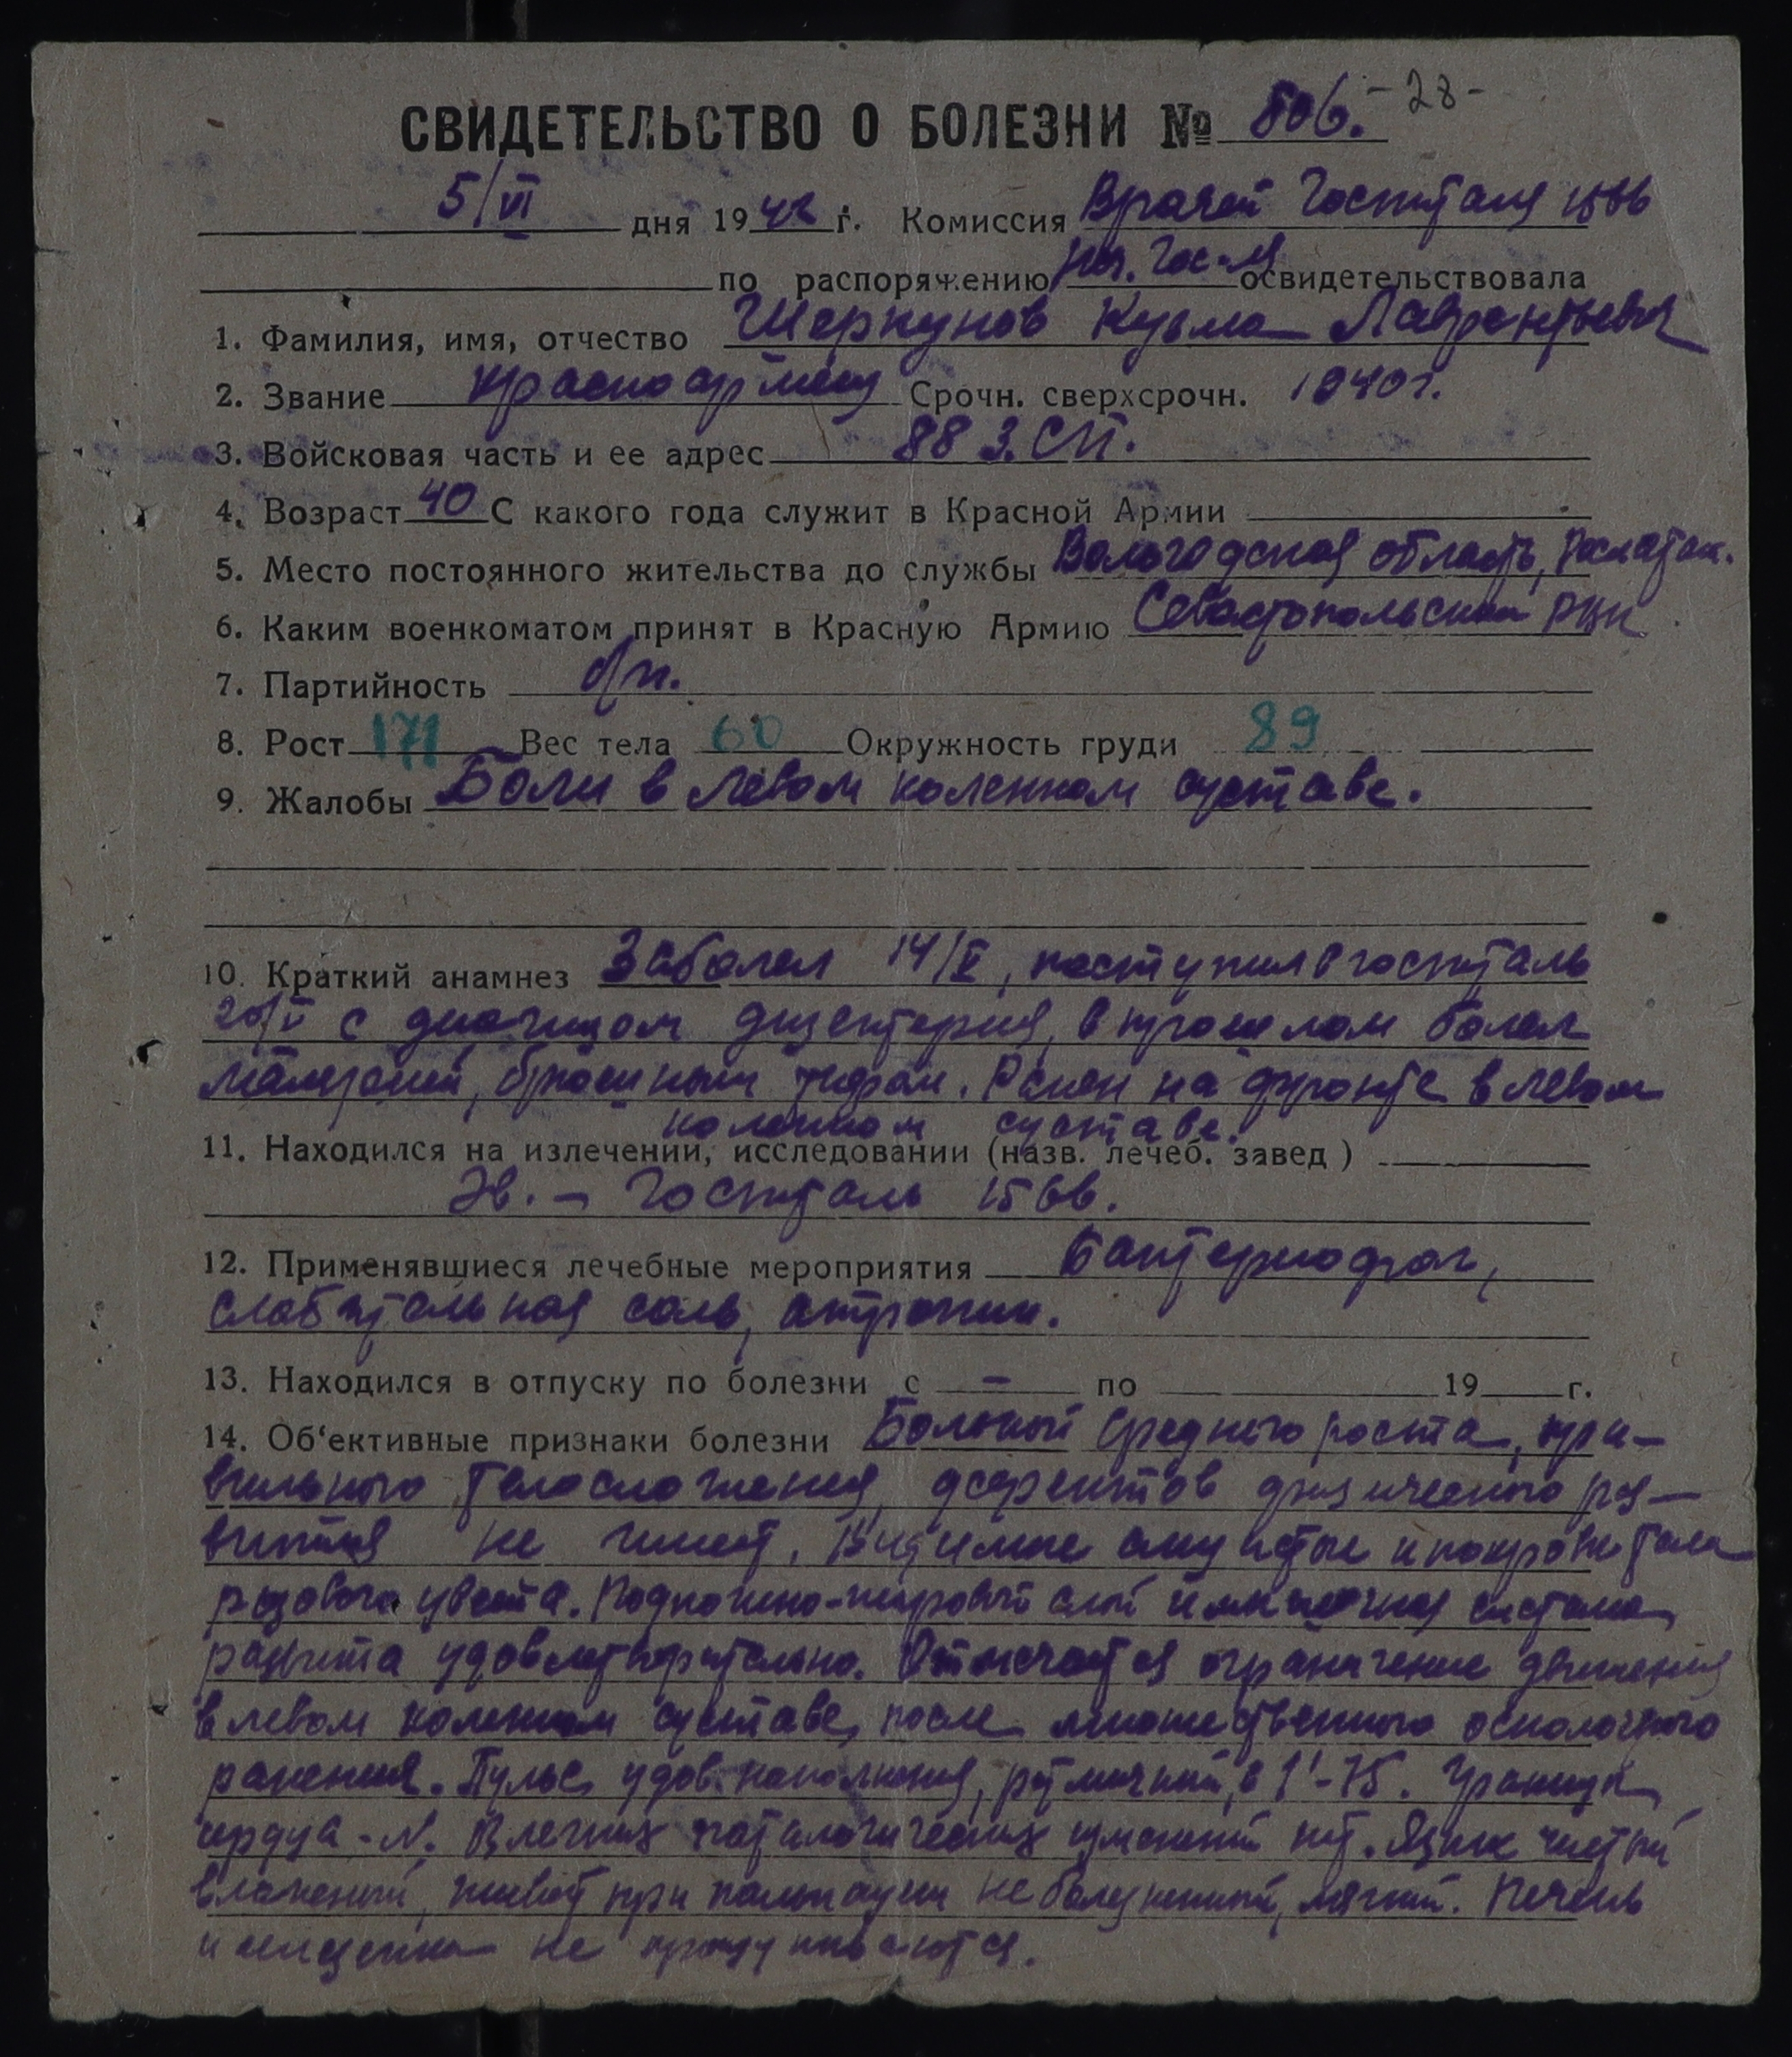 СВИДЕТЕЛЬСТВО О БОЛЕЗНИ № 806. -28-
5/VI дня 1942 г. Комиссия Врачей Госпиталя 1566
по распоряжению нач. Гос-ля освидетельствовала
1. Фамилия, имя, отчество Шеркунов Кузьма Лаврентьевич
2. Звание Красноармеец Срочн. сверхсрочн. 1940 г.
3. Войсковая часть и ее адрес 88 З.СП.
4. Возраст 40 С какого года служит в Красной Армии
5. Место постоянного жительства до службы Вологодская область, Рослятин.
6. Каким военкоматом принят в Красную Армию Севастопольский РВК
7. Партийность б/п.
8. Рост 171 Вес тела 60 Окружность груди 89
9. Жалобы Боли в левом коленном суставе.
10. Краткий анамнез Заболел 14/V, поступил в госпиталь
20/V с диагнозом дизентерия, в прошлом болел
малярией, брюшным тифом. Ранен на фронте в левом
коленном суставе.
11. Находился на излечении, исследовании (назв. лечеб. завед)
Эв. - Госпиталь 1566.
12. Применявшиеся лечебные мероприятия Бактериофаг,
слабительная соль, атропин.
13. Находился в отпуску по болезни с - по 19 г.
14. Об'ективные признаки болезни Больной среднего роста, пра-
вильного телосложения, дефектов физического раз-
вития не имеет. Видимые слизистые и покровы тела
розового цвета. Подкожно-жировой слой и мышечная система
развита удовлетворительно. Отмечается ограничение движения
в левом коленном суставе, после множественного осколочного
ранения. Пульс удов. наполнения, ритмичный, в 1'-75. Границы
сердца - N. В легких патологических изменений нет. Язык чистый
влажный, живот при пальпации не болезненный, мягкий. Печень
и селезенка не прощупываются.